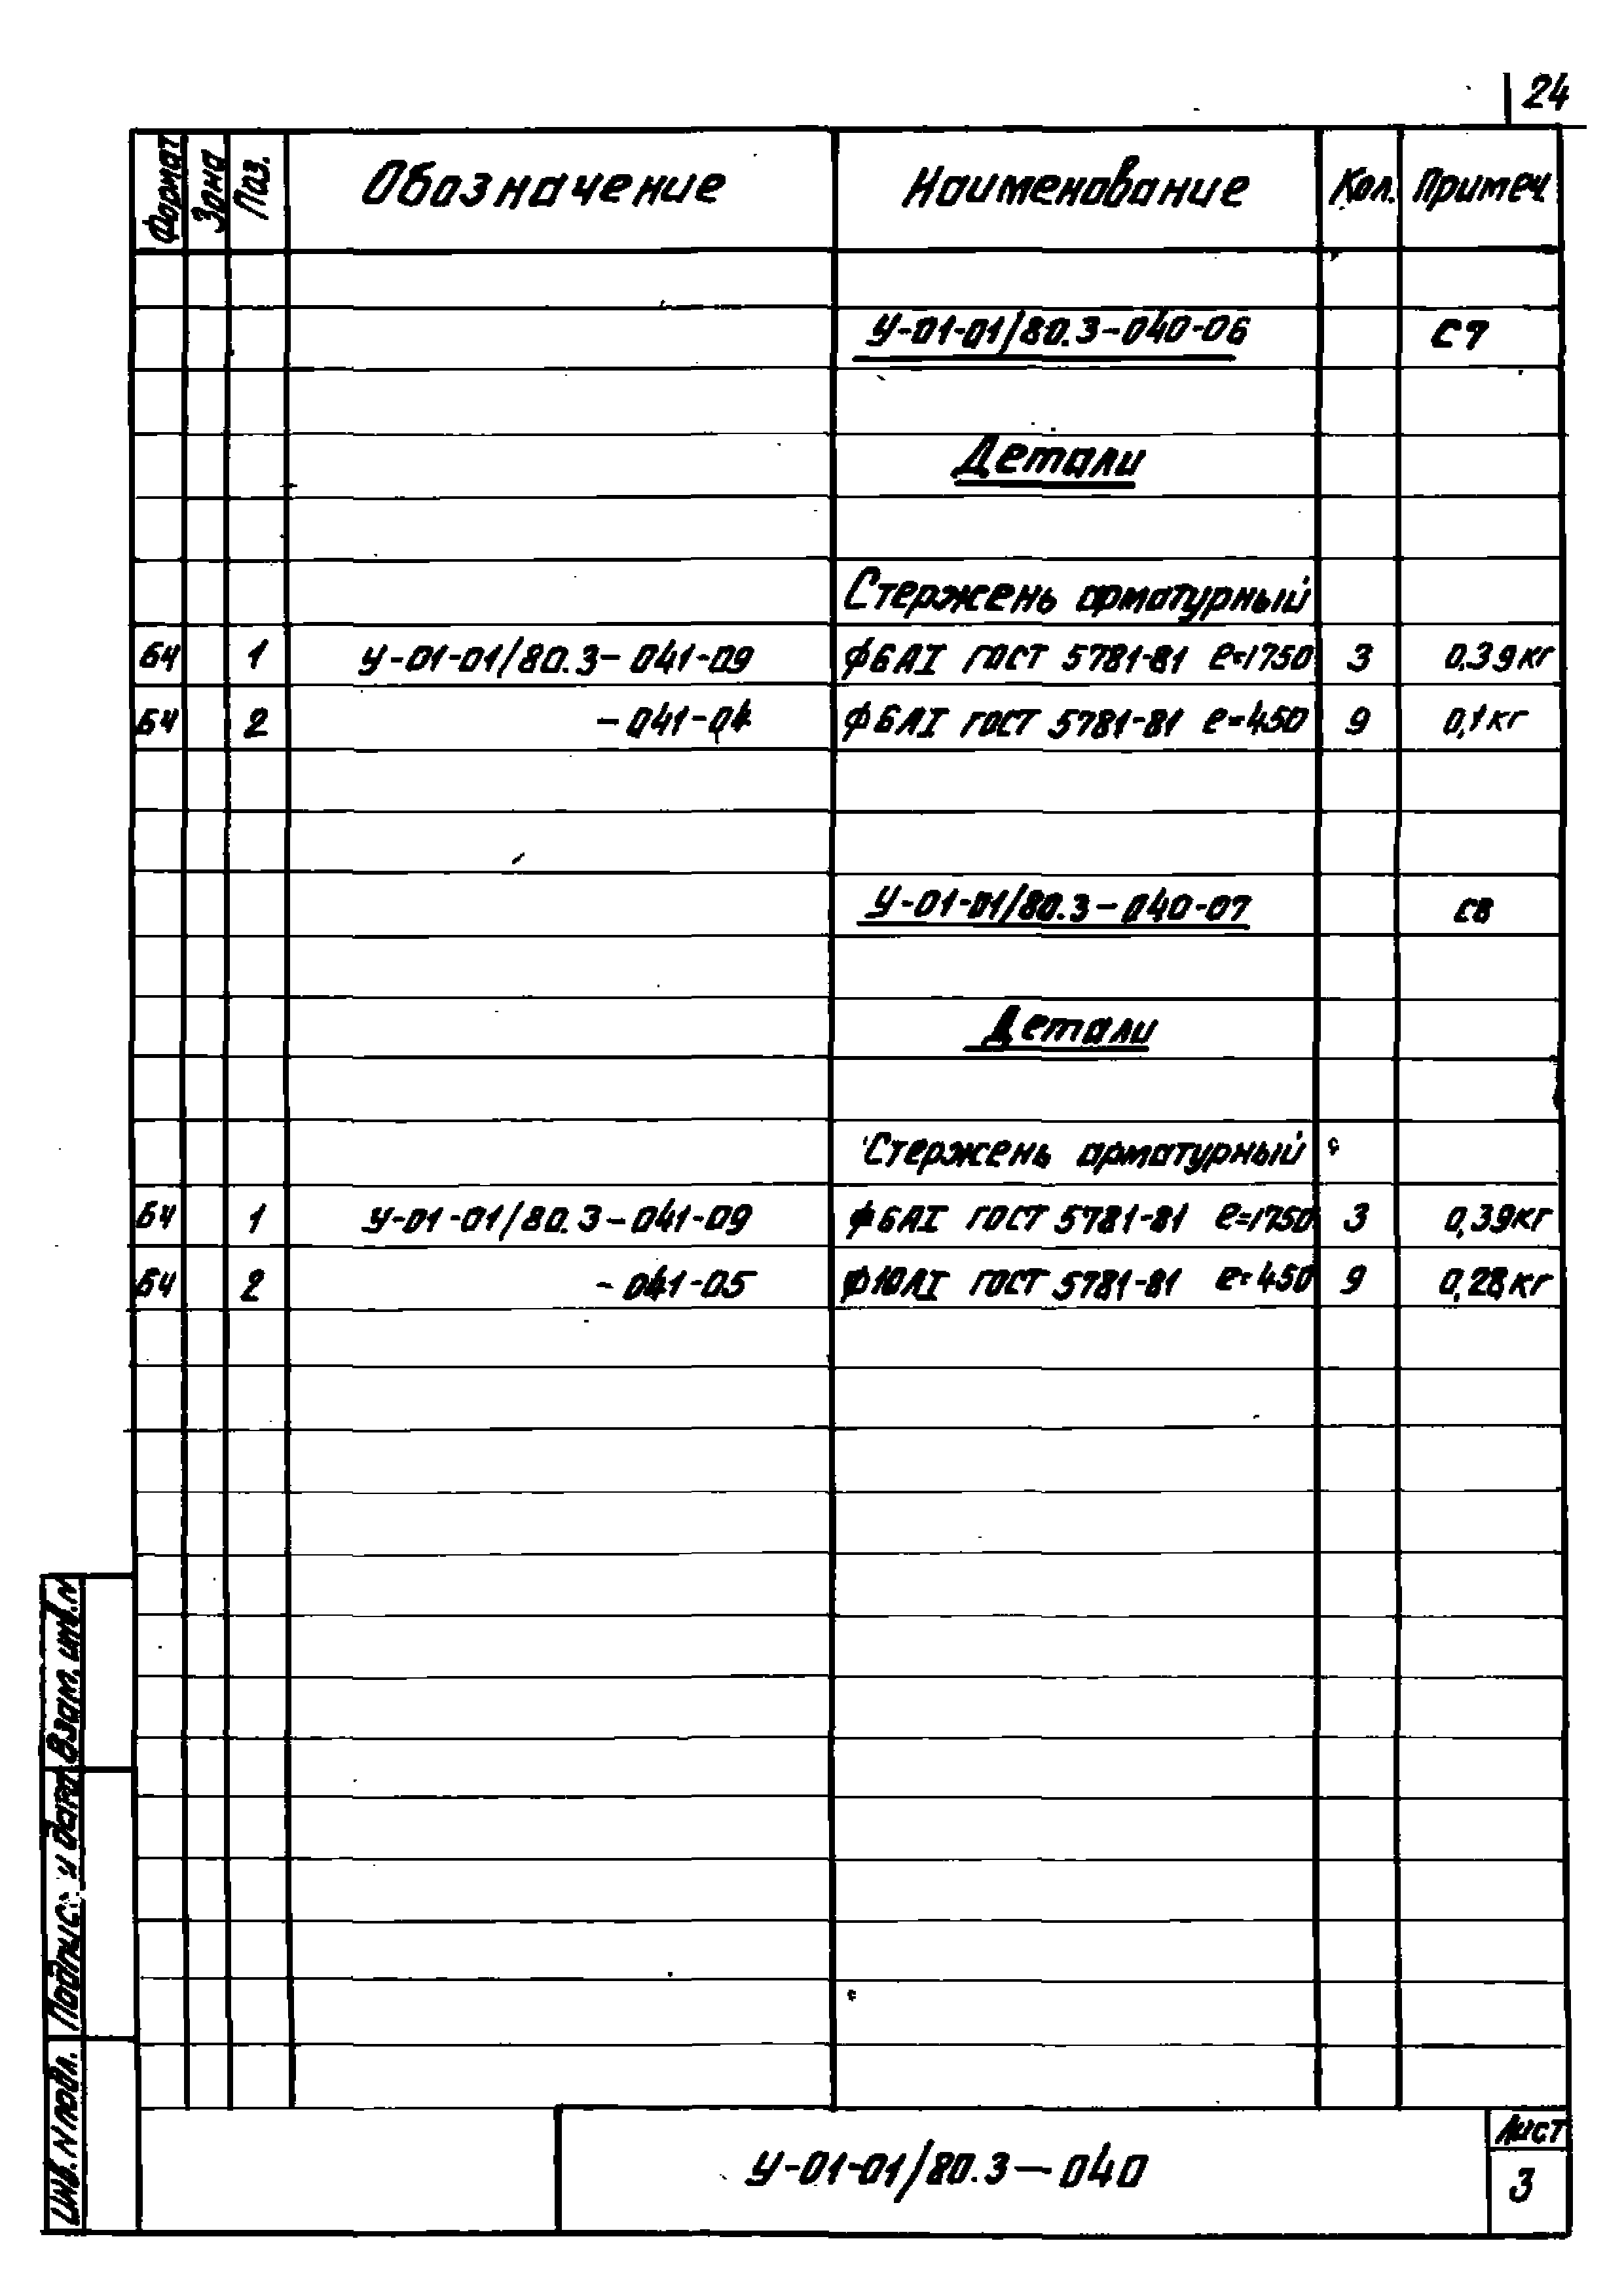 24
Формат Зона Поз. Обозначение Наименование Кол. Примеч
У-01-01/80.3-040-06 С7
Детали
Стержень арматурный
БЧ 1 У-01-01/80.3-041-09 ф6АI ГОСТ 5781-81 ℓ=1750 3 0,39кг
БЧ 2 -041-04 ф6АI ГОСТ 5781-81 ℓ=450 9 0,1кг
У-01-01/80.3-040-07 С8
Детали
Стержень арматурный
БЧ 1 У-01-01/80.3-041-09 ф6АI ГОСТ 5781-81 ℓ=1750 3 0,39кг
БЧ 2 -041-05 ф10АI ГОСТ 5781-81 ℓ=450 9 0,28кг
Взам. инв. N
Подпись и дата
Инв. N подл.
У-01-01/80.3-040
Лист
3